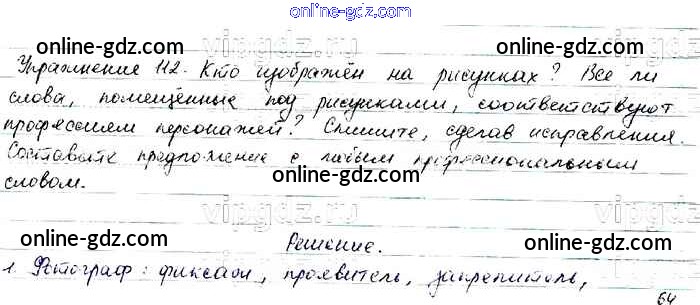 online-gdz.com
online-gdz.com online-gdz.com
vipgdz.ru
Упражнение 112. Кто изображён на рисунках? Все ли
слова, помещённые под рисунками, соответствуют
online-gdz.com online-gdz.com
профессиям персонажей? Спишите, сделав исправления.
Составьте предложение с любым профессиональным
online-gdz.com online-gdz.com
словом.
vipgdz.ru vipgdz.ru
online-gdz.com online-gdz.com
Решение.
1. Фотограф: фиксаж, проявитель, закрепитель,
64